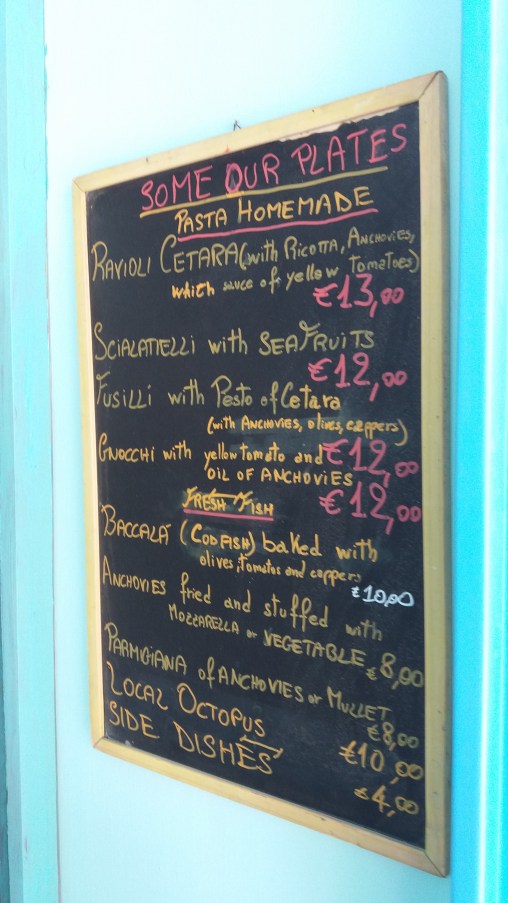 SOME OUR PLATES
PASTA HOMEMADE
RAVIOLI CETARA (with RICOTTA, ANCHOVIES,
which sauce of yellow tomatoes)
€13,00
SCIALATIELLI with SEAFRUITS
€12,00
FUSILLI with Pesto of Cetara
(with ANCHOVIES, olives, cappers)
€12,00
GNOCCHI with yellow tomato and
OIL OF ANCHOVIES
€12,00
FRESH FISH
BACCALÁ (CODFISH) baked with
olives, tomatos and cappers
€10,00
ANCHOVIES fried and stuffed with
MOZZARELLA or VEGETABLE €8,00
PARMIGIANA of ANCHOVIES or MULLET
€8,00
LOCAL OCTOPUS €10,00
SIDE DISHES €4,00